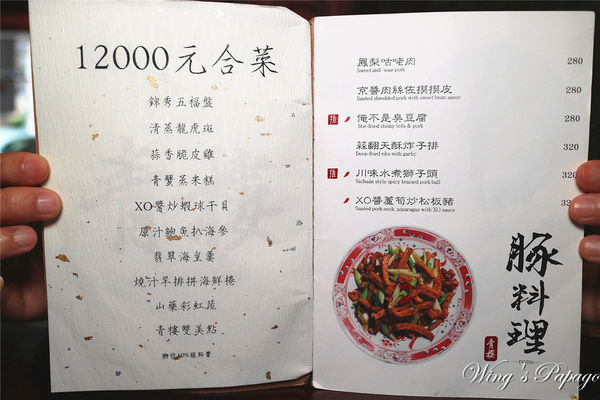 12000元合菜
錦秀五福盤
清蒸龍虎斑
蒜香脆皮雞
青蟹蒸米糕
XO醬炒蝦球干貝
原汁鮑魚扒海參
翡翠海皇羹
燒汁羊排拼海鮮捲
山藥彩虹蔬
青樓雙美點
鳳梨咕咾肉 280
Sweet and sour pork
京醬肉絲佐摸摸皮 280
Sauteed shredded pork with sweet bean sauce
推 俺不是臭豆腐 280
Stir-dried stinky tofu & pork
蒜翻天酥炸子排
Deep-fried ribs with garlic
推 川味水煮獅子頭 320
Sichuan style spicy braised pork ball
XO醬蘆筍炒松板豬 32
Sauted pork neck, asparagus with XO sauce
豚料理
青樓
PORK
Wing's Papago